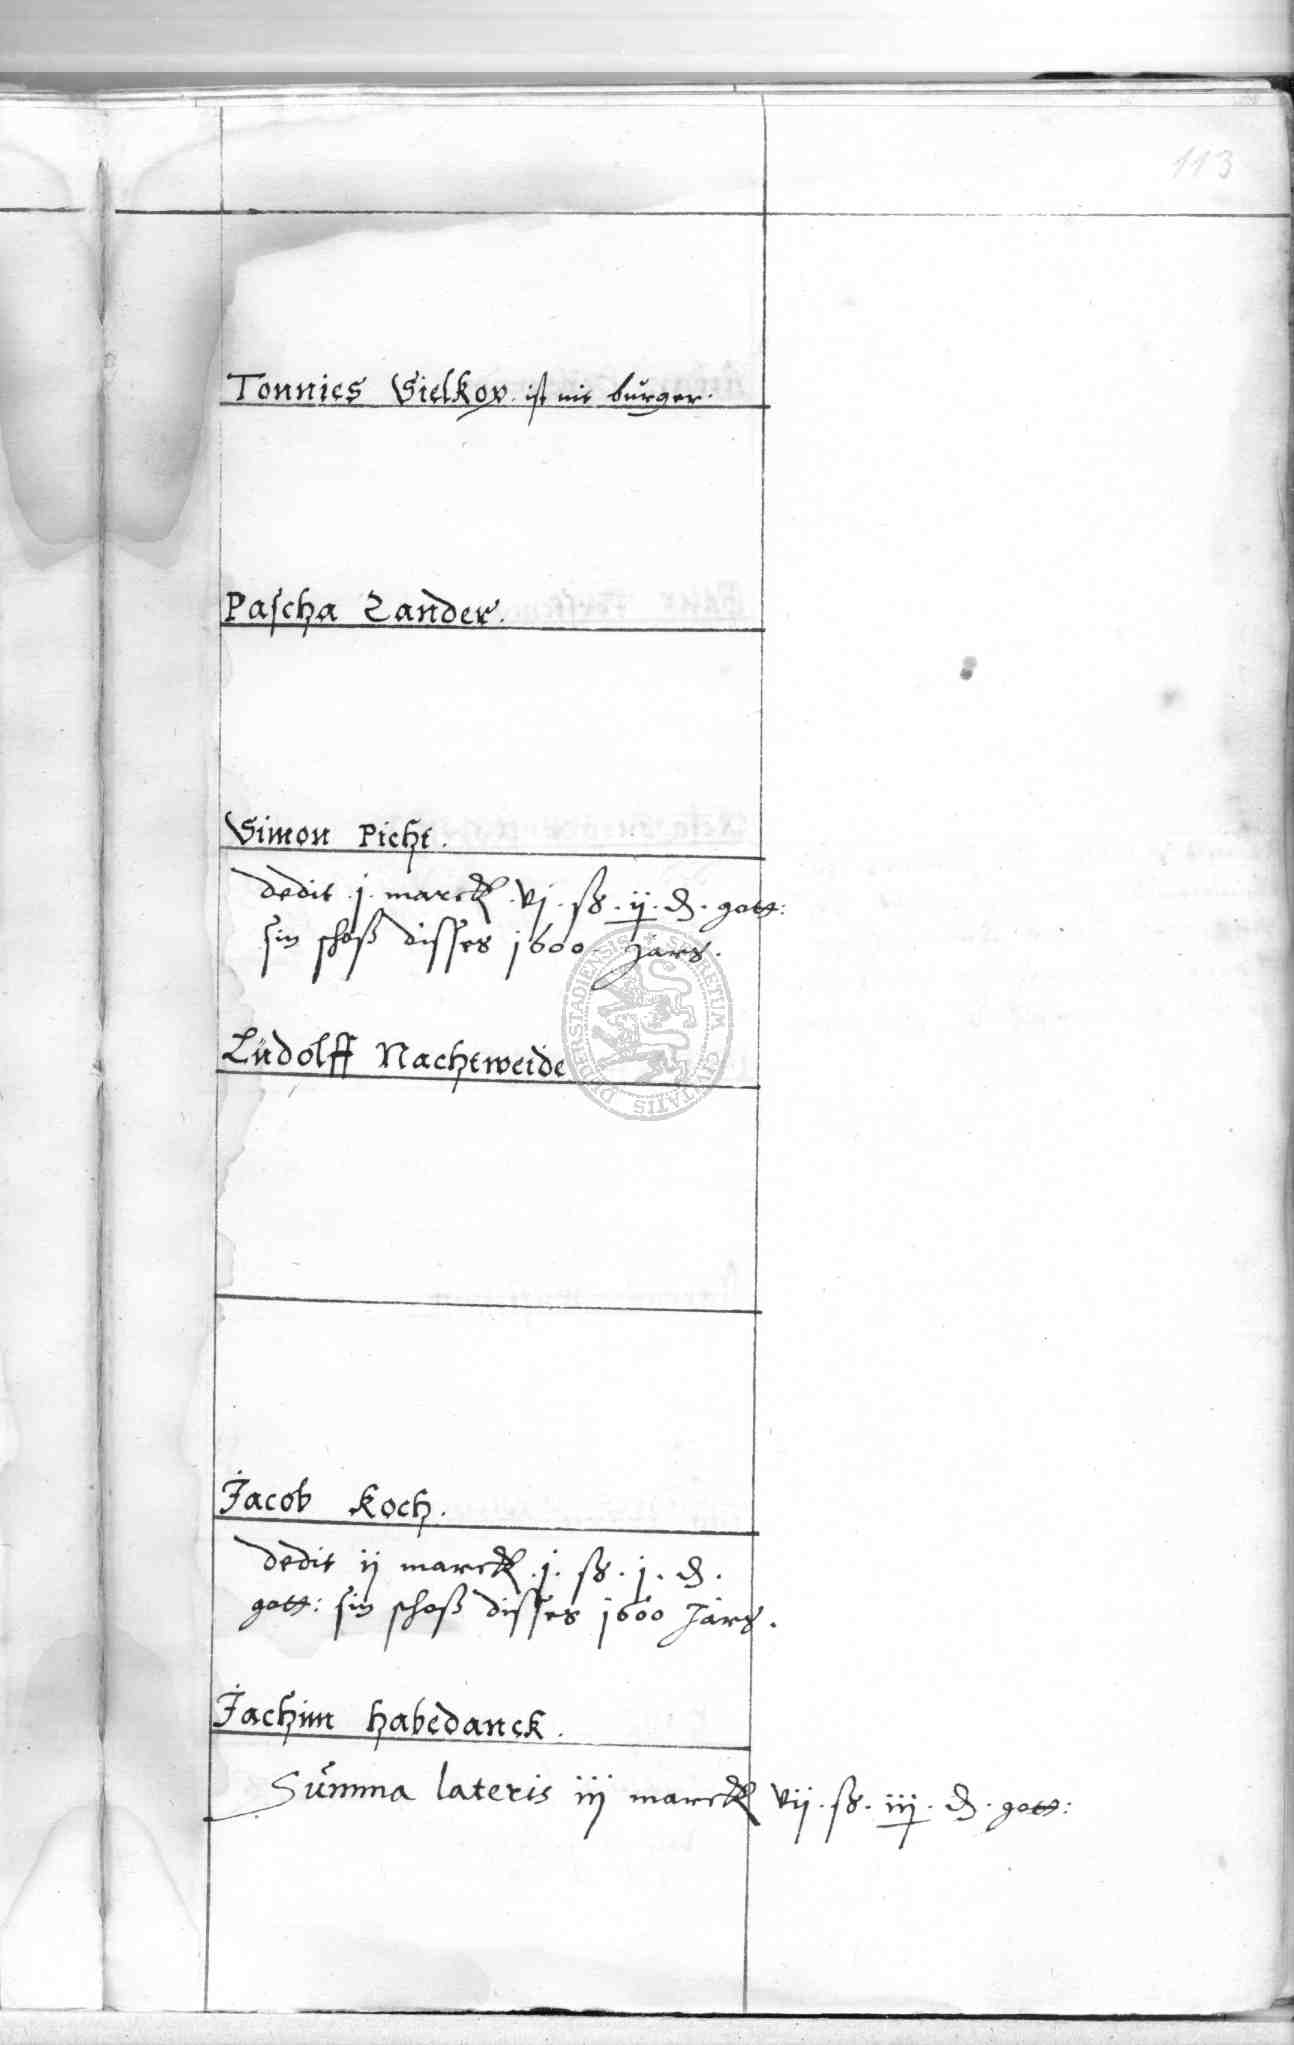 113
Tonnies Sielkop ist nit bürger.
Pascha Zander.
Simon Picht.
dedit .j. marck .vj. ß. ij. ₰. gott:
sin schoß disses 1600. Jars.
SECRETUM CIVITATIS DUDERSTADIENSIS
Lüdolff Nachtweide
Jacob Koch.
dedit ij marck .j. ß. j. ₰.
gott: sin schoß disses 1600 Jars.
Jachim habedanck.
Summa lateris iij marck vij. ß. iij. ₰. gott: